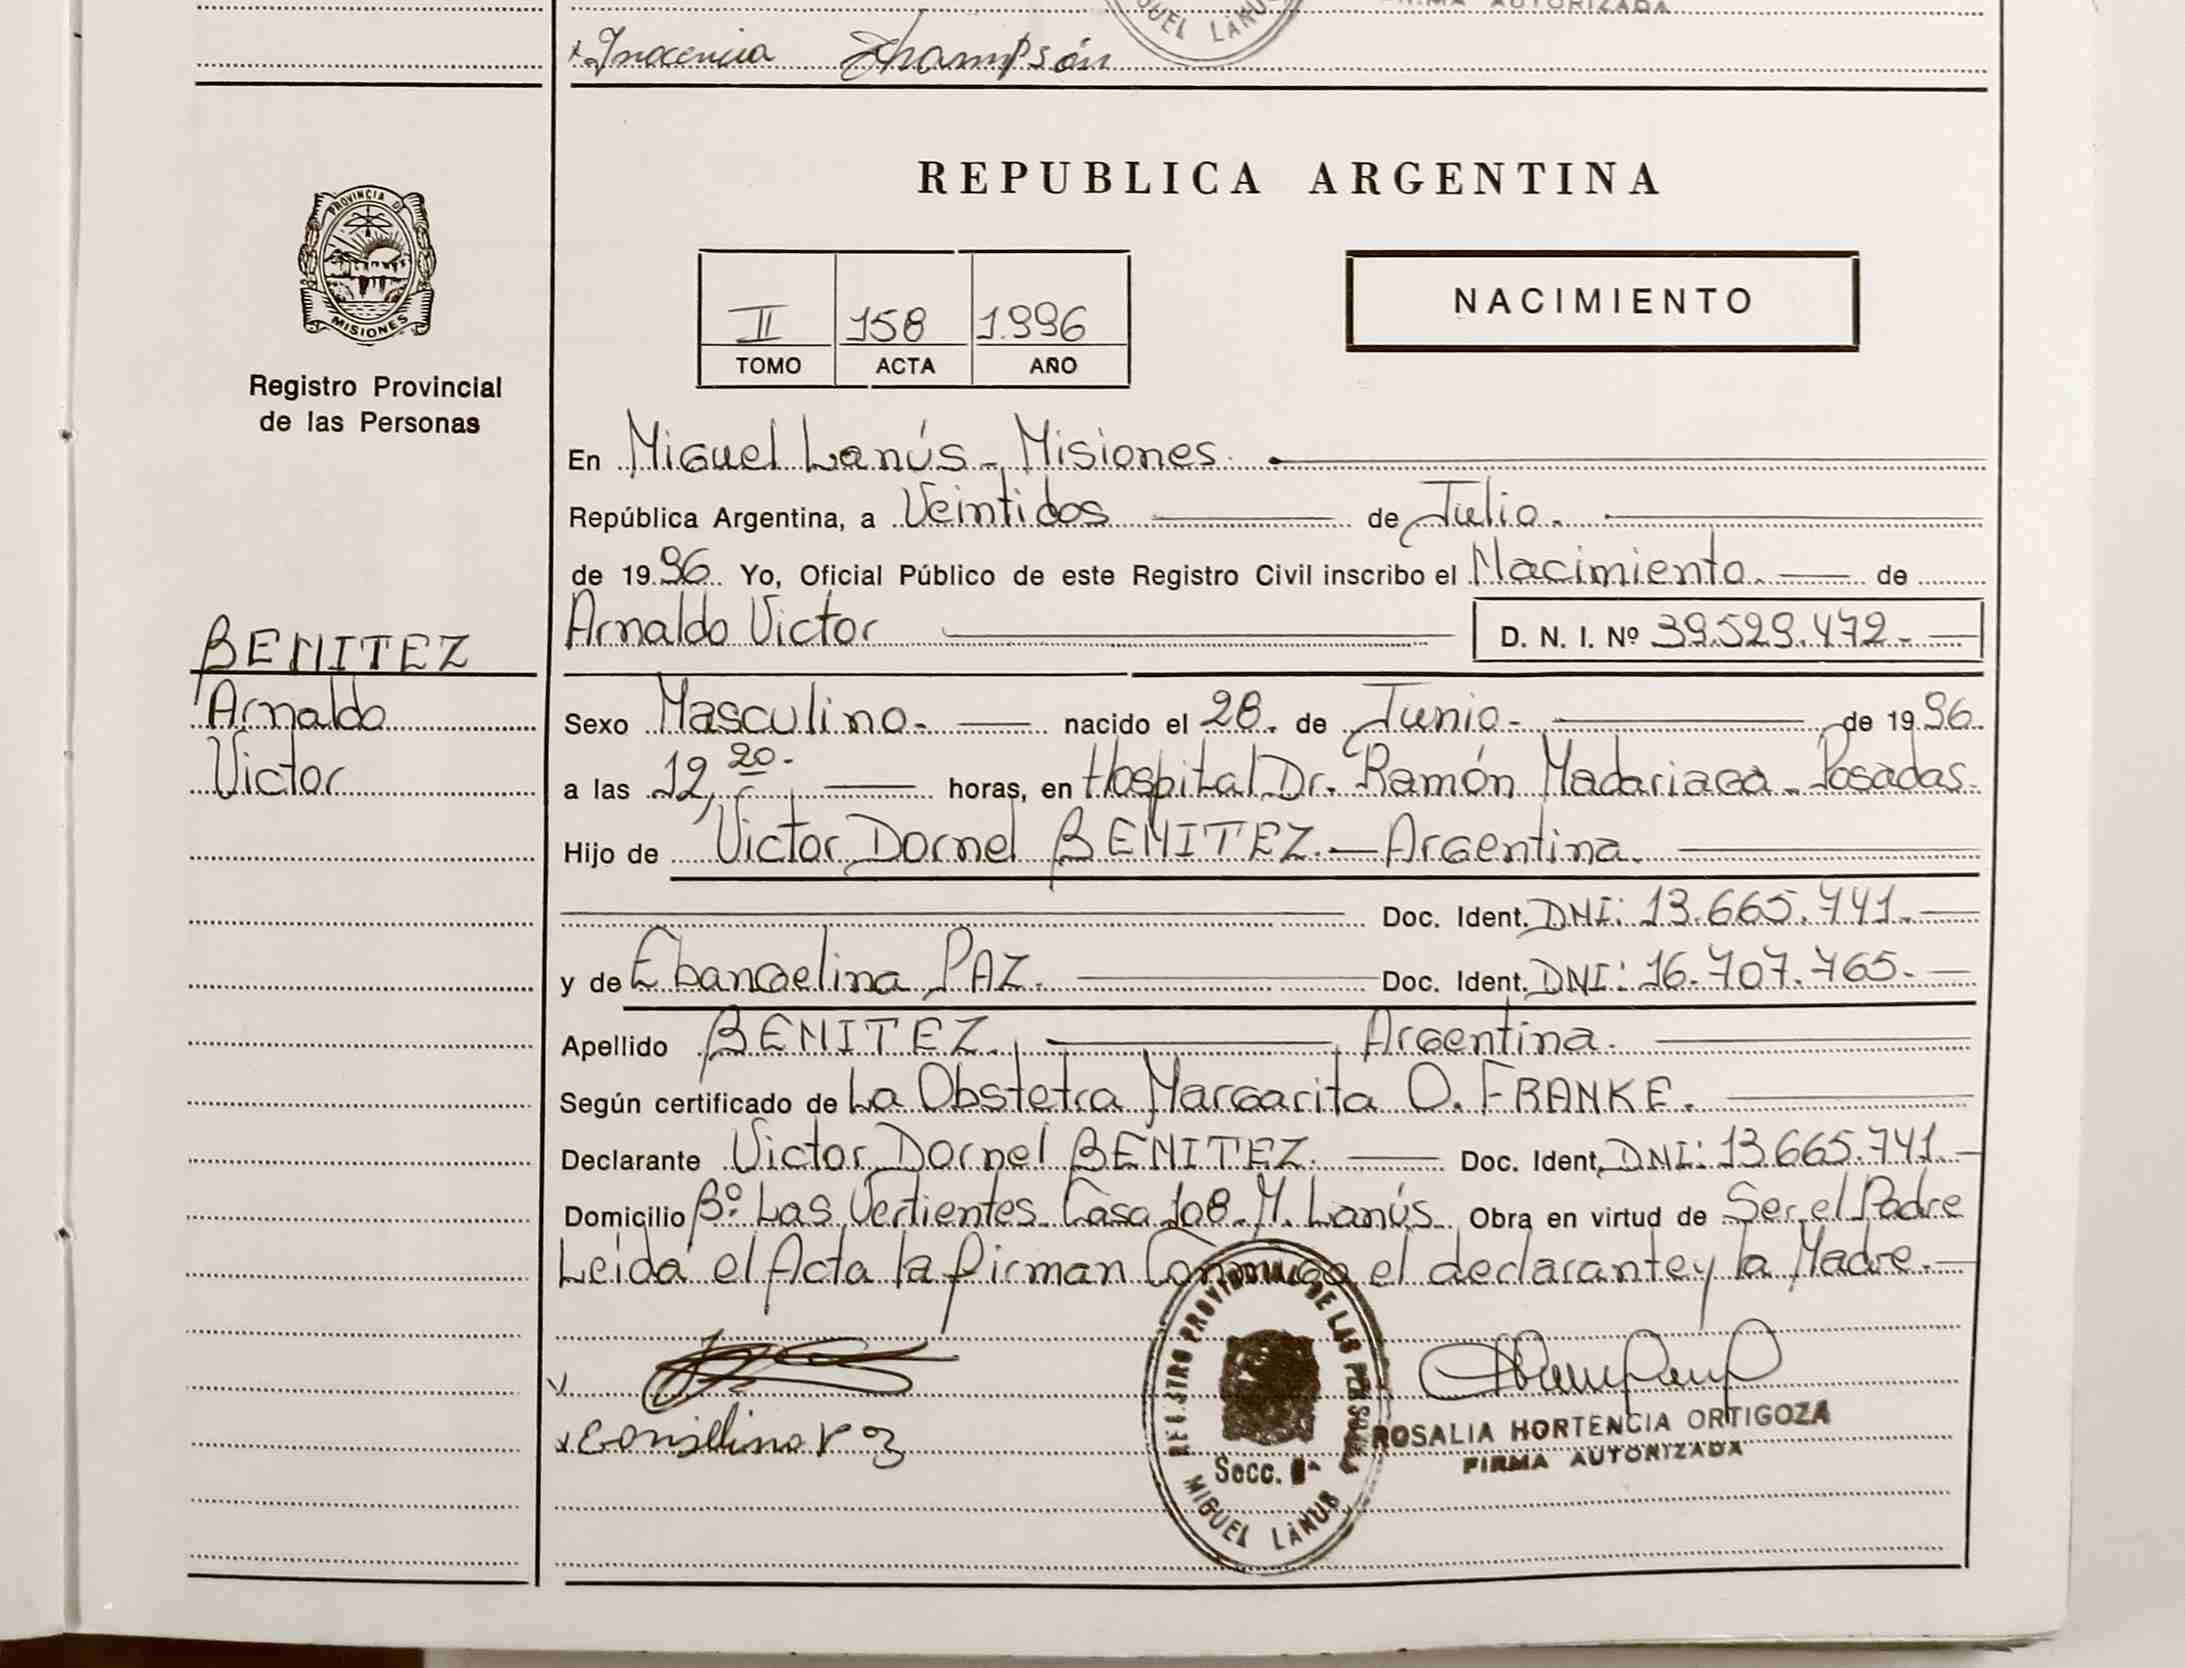 FIRMA AUTORIZADA
MIGUEL LANUS
Inocencia
REPUBLICA ARGENTINA
PROVINCIA DE
MISIONES
NACIMIENTO
II 158 1.996
TOMO ACTA AÑO
Registro Provincial
de las Personas
En Miguel Lanús - Misiones.
República Argentina, a Veintidos de Julio.
de 1996. Yo, Oficial Público de este Registro Civil inscribo el Nacimiento. de
Arnaldo Victor D. N. I. Nº 39.529.472.-
BENITEZ
Arnaldo
Victor
Sexo Masculino.- nacido el 28. de Junio.- de 1996.
a las 12,20.- horas, en Hospital Dr. Ramón Madariaga - Posadas.
Hijo de Victor Dornel BENITEZ.- Argentina.
Doc. Ident. DNI: 13.665.741.-
y de Ebangelina PAZ. Doc. Ident. DNI: 16.707.765.-
Apellido BENITEZ. Argentina.
Según certificado de La Obstetra Margarita O. FRANKE.
Declarante Victor Dornel BENITEZ. Doc. Ident. DNI: 13.665.741.-
Domicilio Bº. Las Vertientes Casa 108 - M. Lanús. Obra en virtud de Ser el Padre
Leida el Acta la firman Conmigo el declarante y la Madre.-
REGISTRO PROVINCIAL DE LAS PERSONAS
Secc.
MIGUEL LANUS
ROSALIA HORTENCIA ORTIGOZA
FIRMA AUTORIZADA